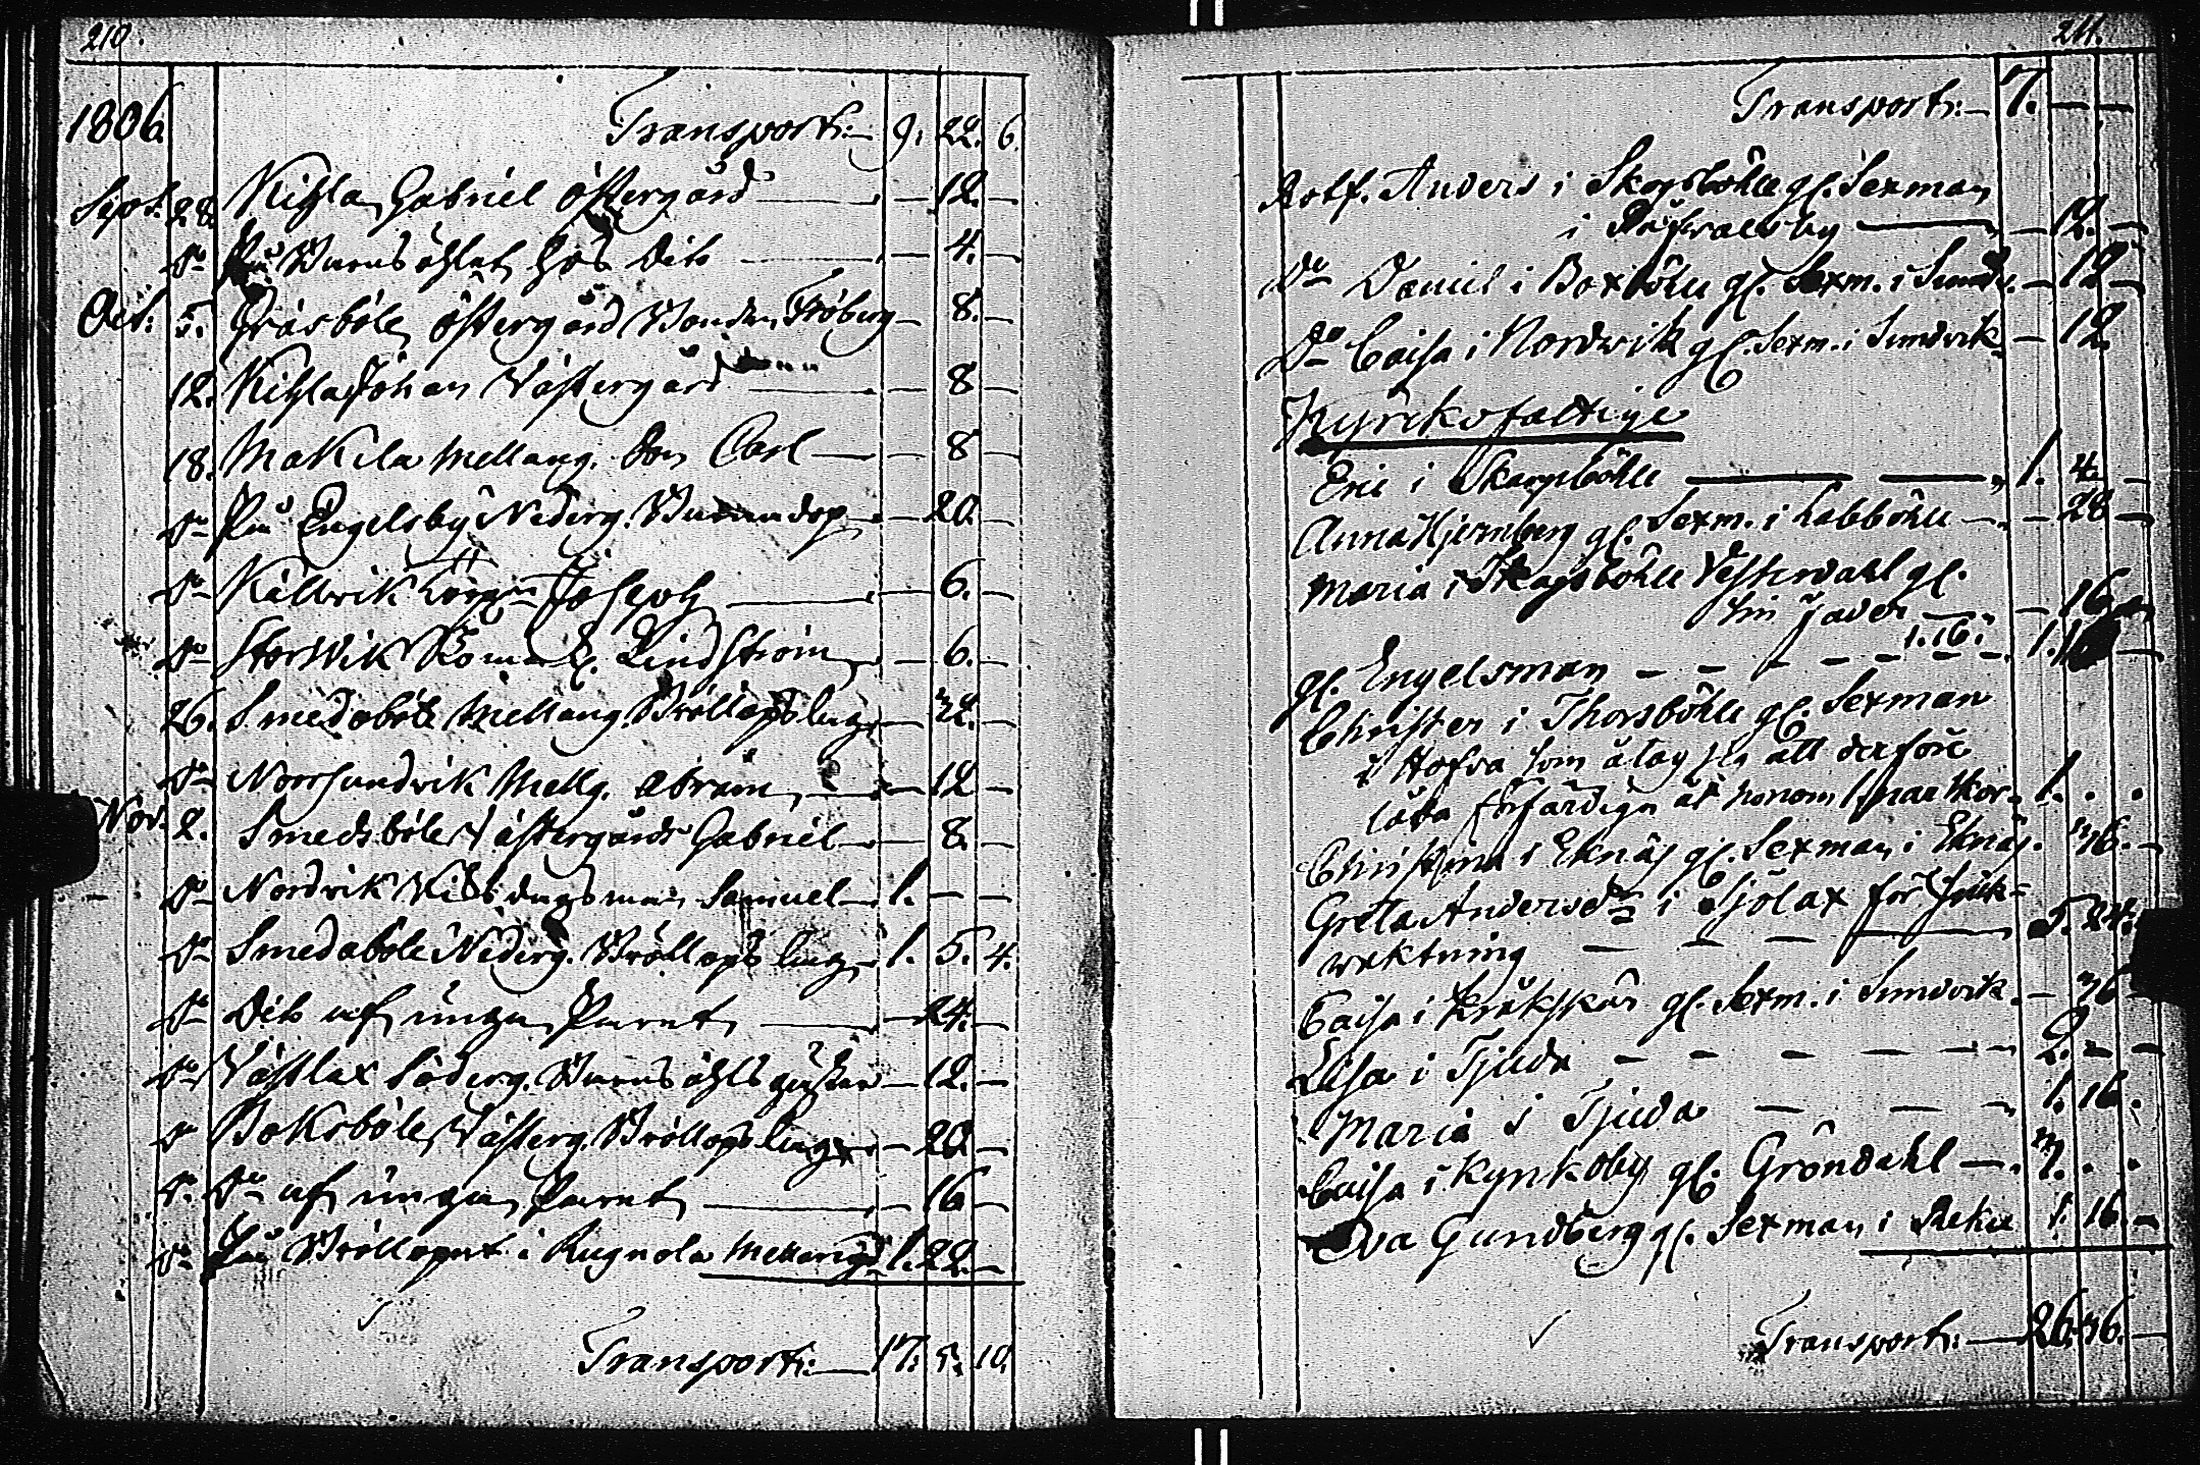 210.
1806. Transport: 9. 22. 6.
Sept. 28. Kihla Gabriel Östergård — 12. —
Do På Barnsöhlet hos Dito — 4. —
Oct: 5. Gräsböle Östergård Bonden Fröberg — 8. —
12. Kihla Johan Västergård — 8 —
18. Makila Mellang. Son Carl — 8 —
Do På Engelsby Nederg. Barndop — 20. —
Do Källvik Joseph — 6. —
Do Storvik Lindström — 6. —
26. Smedsböle Mellang. Bröllops — 32. —
Do Norrsundvik Mellg. Abram — 12 —
Nov. 2. Smedsböle Västergårds Gabriel — 8. —
Do Nordvik Riksdagsman Samuel — 1. — —
Do Smedsböle Nederg. Bröllops 1. 5. 4.
Do Dito af unga Paret — 24. —
Do Västlax Söderg. Barnsöhls gäster — 12. —
Do Boksböle Västerg. Bröllops — 20. —
Do Do af unga Paret — 16 —
Do På Bröllopet i Rugnola Mellang. 1. 22. —
Transport: 17. 5. 10.
211.
Transport: 7. — —
Rotf. Anders i Skogsböhle gf. Sexman
i — 12. —
Do Daniel i Boxböhle gf. Sexm. i Sundv. — 12 —
Do Caisa i Nordwik gf. Sexm. i Sundvik — 12.
Kyrkofattige
Eric i Skogsböhle — 1. 4. —
Anna Hjernberg gf. Sexm. i Labböhle — 28 —
Maria i Skogsböhle Vesterdahl gf.
Sin Fader — 16 —
1. 16.
gf. Engelsman — 1. 16 —
Christer i Thorsböhle gf. Sexman
i Hofva som åtog sig att derföre
låta förfärdiga åt honom 1 par Skor 1. . .
Christina i Eknäs gf. Sexman i Eknäs. 36. —
Greta Andersdr i Sjölax för sjuk-
vaktning — 5. 24.
Caisa i Kråkskär gf. Sexm. i Sundvik. — 36
Lisa i Tjuda — 2. — —
Maria i Tjuda — 1. 16.
Caisa i Kynkoby gf. Gröndahl — 3. . .
Eva Gundberg gf. Sexman i Reku 1. 16. —
Transport: 26. 36. —